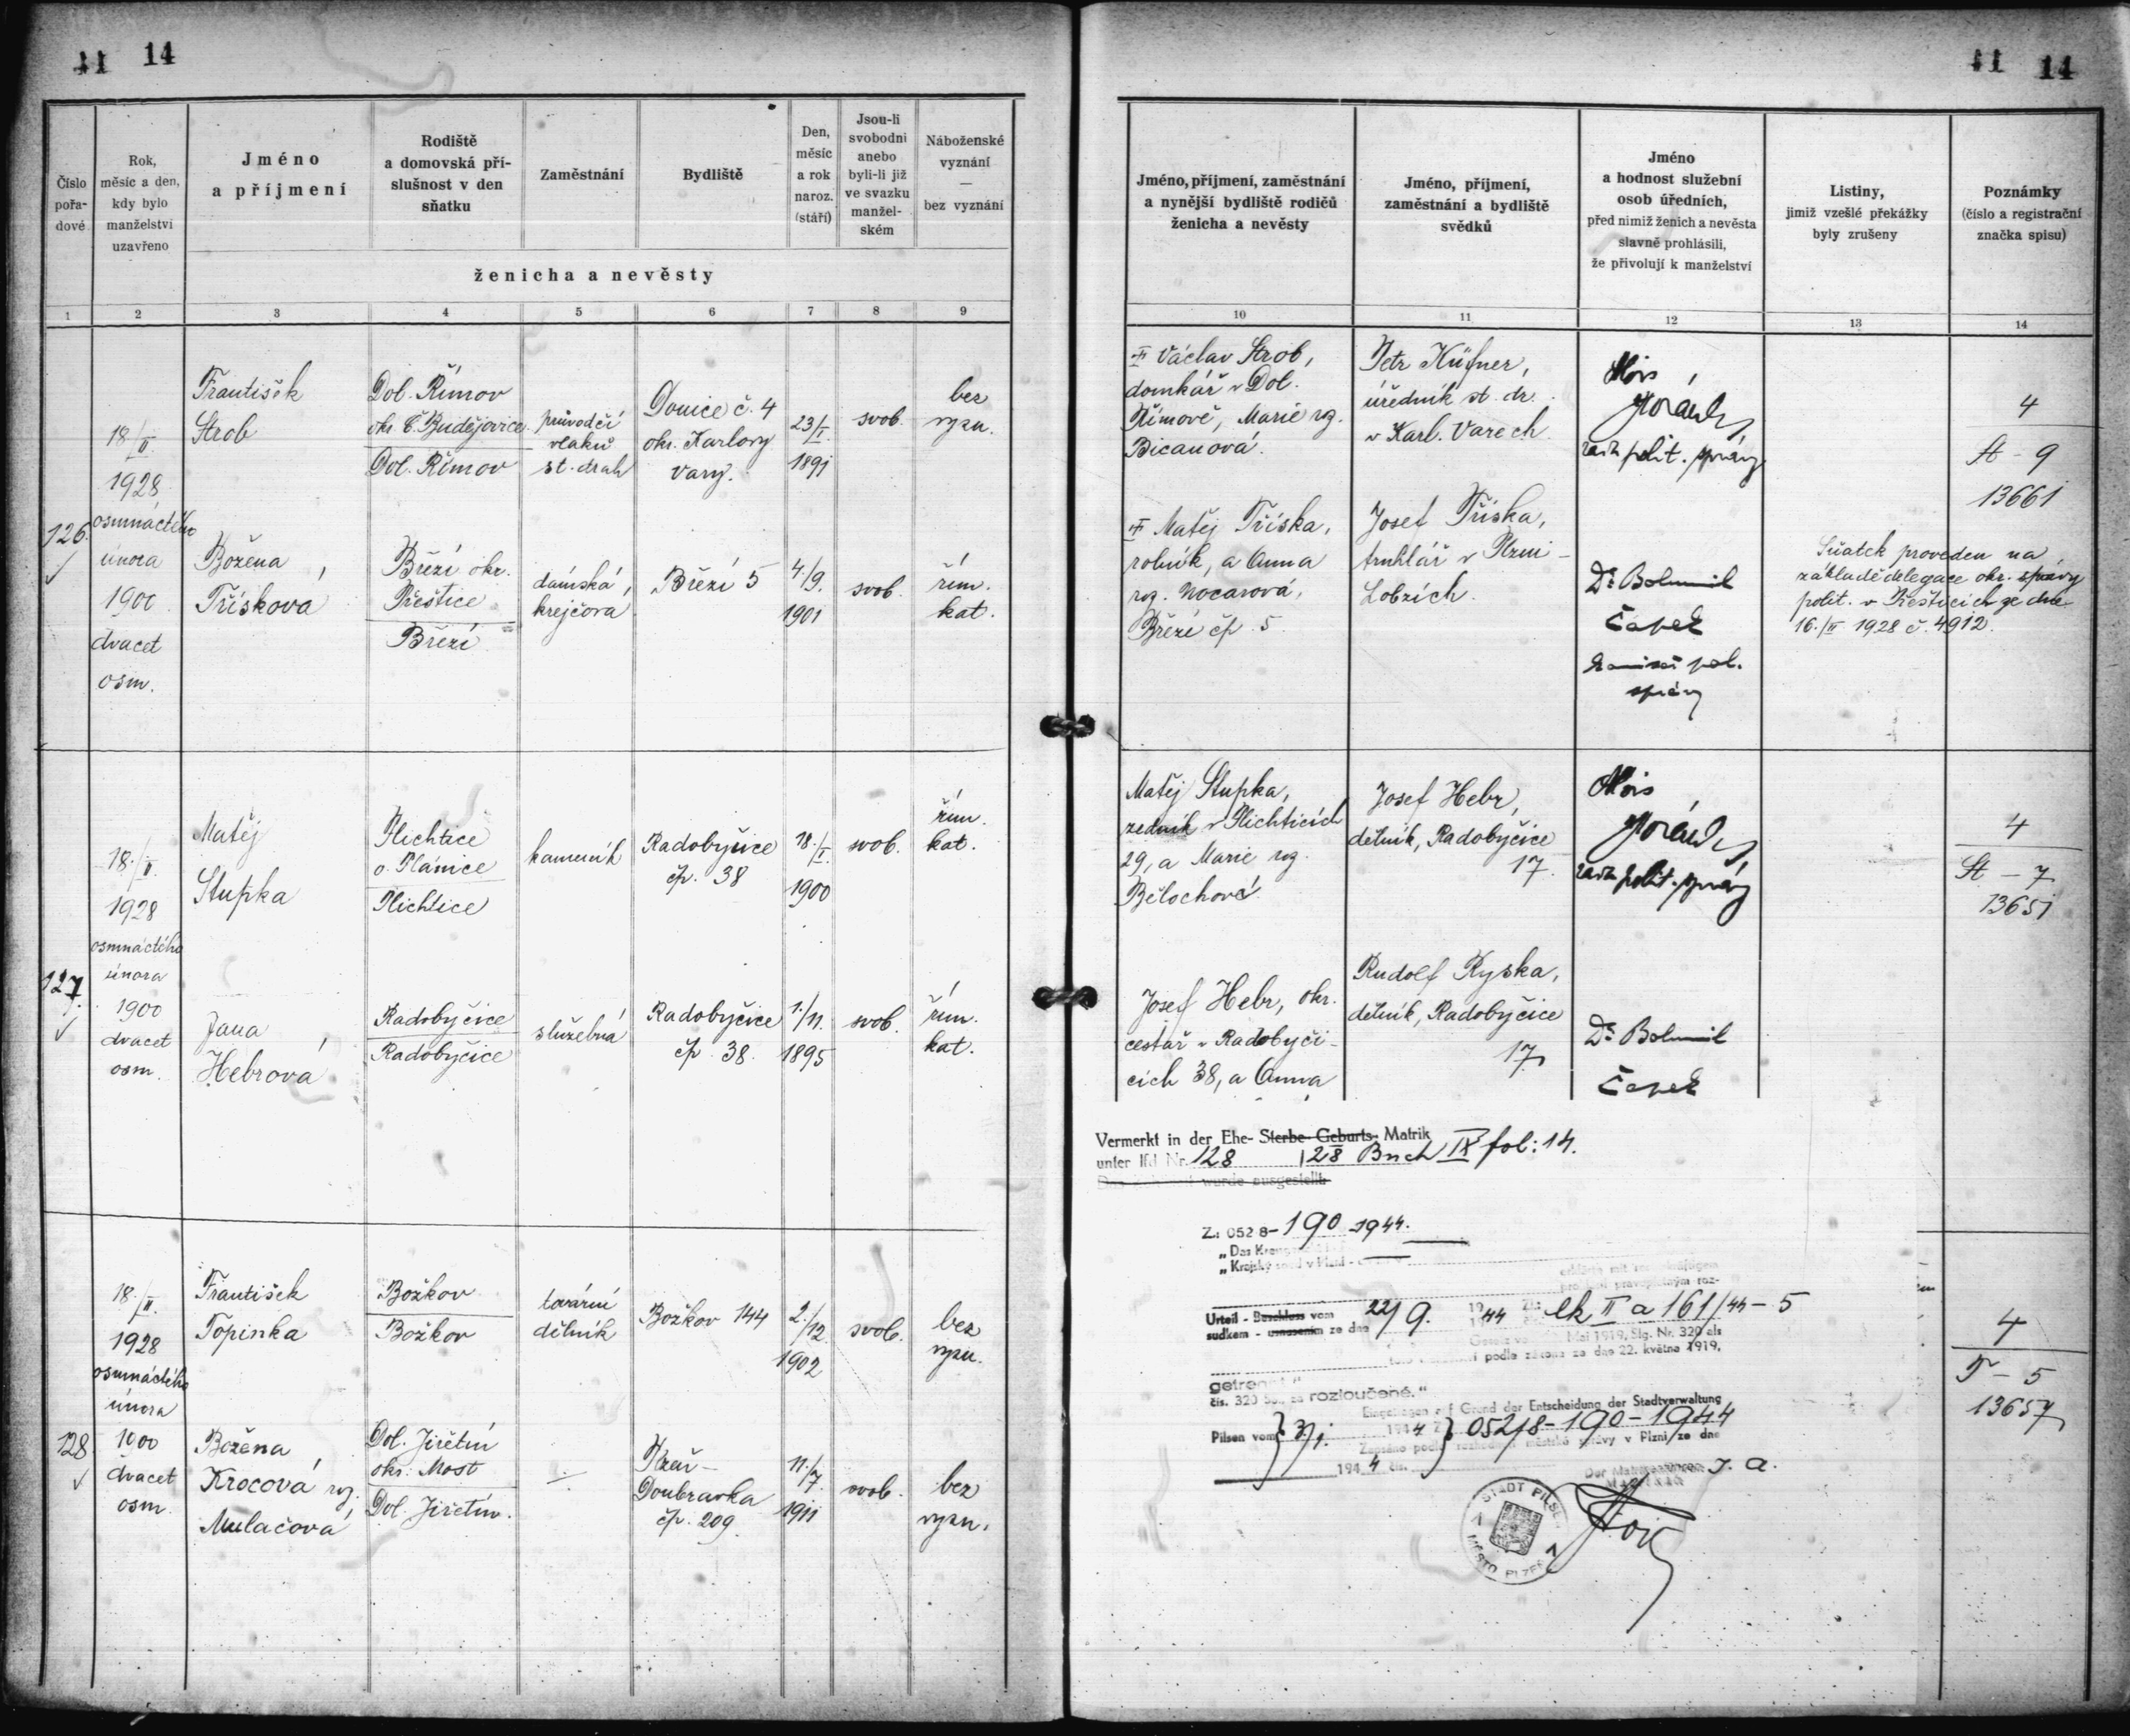 11 14
11 14
Číslo
pořa-
dové
Rok,
měsíc a den,
kdy bylo
manželství
uzavřeno
Jméno
a příjmení
Rodiště
a domovská pří-
slušnost v den
sňatku
Zaměstnání
Bydliště
Den,
měsíc
a rok
naroz.
(stáří)
Jsou-li
svobodni
anebo
byli-li již
ve svazku
manžel-
ském
Náboženské
vyznání
—
bez vyznání
ženicha a nevěsty
1 2 3 4 5 6 7 8 9
Jméno, příjmení, zaměstnání
a nynější bydliště rodičů
ženicha a nevěsty
Jméno, příjmení,
zaměstnání a bydliště
svědků
Jméno
a hodnost služební
osob úředních,
před nimiž ženich a nevěsta
slavně prohlásili,
že přivolují k manželství
Listiny,
jimiž vzešlé překážky
byly zrušeny
Poznámky
(číslo a registrační
značka spisu)
10 11 12 13 14
126.
18./II.
1928
osmnáctého
února
1900
dvacet
osm.
František
Strob
Dol. Římov
okr. Č. Budějovice
Dol. Římov
průvodčí
vlaků
st. drah
Donice č. 4
okr. Karlovy
Vary.
23/I.
1891
svob.
bez
vyzn.
Božena
Třísková
Březí okr.
Přeštice
Březí
dámská
krejčová
Březí 5
4./9.
1901
svob.
řím.
kat.
Václav Strob,
domkář v Dol.
Římově, Marie roz.
Bicanová.
Matěj Tříska,
rolník, a Anna
roz. Nocarová,
Březí čp. 5.
Petr Küfner,
úředník st. dr.
v Karl. Varech.
Josef Tříska,
truhlář v Plzni-
Lobzích.
Alois
rada polit. správy
Dr Bohumil
Čapek
komisař pol.
správy
Sňatek proveden na
základě delegace okr. správy
polit. v Přešticích ze dne
16./II 1928 č. 4912.
4
St - 9
13661
127.
18./II.
1928
osmnáctého
února
1900
dvacet
osm.
Matěj
Stupka
Plichtice
o. Plánice
Plichtice
kameník
Radobyčice
čp. 38
18./I.
1900
svob.
řím.
kat.
Jana
Hebrová
Radobyčice
Radobyčice
služebná
Radobyčice
čp. 38.
1./11.
1895
svob.
řím.
kat.
Matěj Stupka,
zedník v Plichticích
29, a Marie roz.
Bělochová
Josef Hebr, okr.
cestář v Radobyči-
cích 38, a Anna
Josef Hebr,
dělník, Radobyčice
17.
Rudolf Ryska,
dělník, Radobyčice
17
Alois
rada polit. správy
Dr Bohumil
Čapek
4
St - 7
13651
128.
18./II.
1928
osmnáctého
února
1900
dvacet
osm.
František
Topinka
Božkov
Božkov
tovární
dělník
Božkov 144
2./12
1902
svob.
bez
vyzn.
Božena
Krocová roz.
Mulačová
Dol. Jiřetín
okr. Most
Dol. Jiřetín.
Plzeň-
Doubravka
čp. 209.
11./7
1911
svob.
bez
vyzn.
4
T - 5
13657
Vermerkt in der Ehe- Sterbe- Geburts- Matrik
unter lfd Nr. 128 128 Buch IX fol: 14.
wurde ausgestellt
Z.: 0528-190 1944.
„Krajský soud v Plzni
Urteil - Beschluss vom 22/9. 1944 Z.: Ck II a 161/44-5
sudkem - usnesením ze dne
Mai 1919, Slg. Nr. 320 als
podle zákona ze dne 22. května 1919,
getrennt“
čís. 320 Sb., za rozloučené.“
Eingetragen auf Grund der Entscheidung der Stadtverwaltung
Pilsen vom 1944 Z. 0528-190-1944
Zapsáno podle rozhodnutí městské správy v Plzni ze dne
1944 čís.
J. A.
STADT PILSEN
MĚSTO PLZEŇ